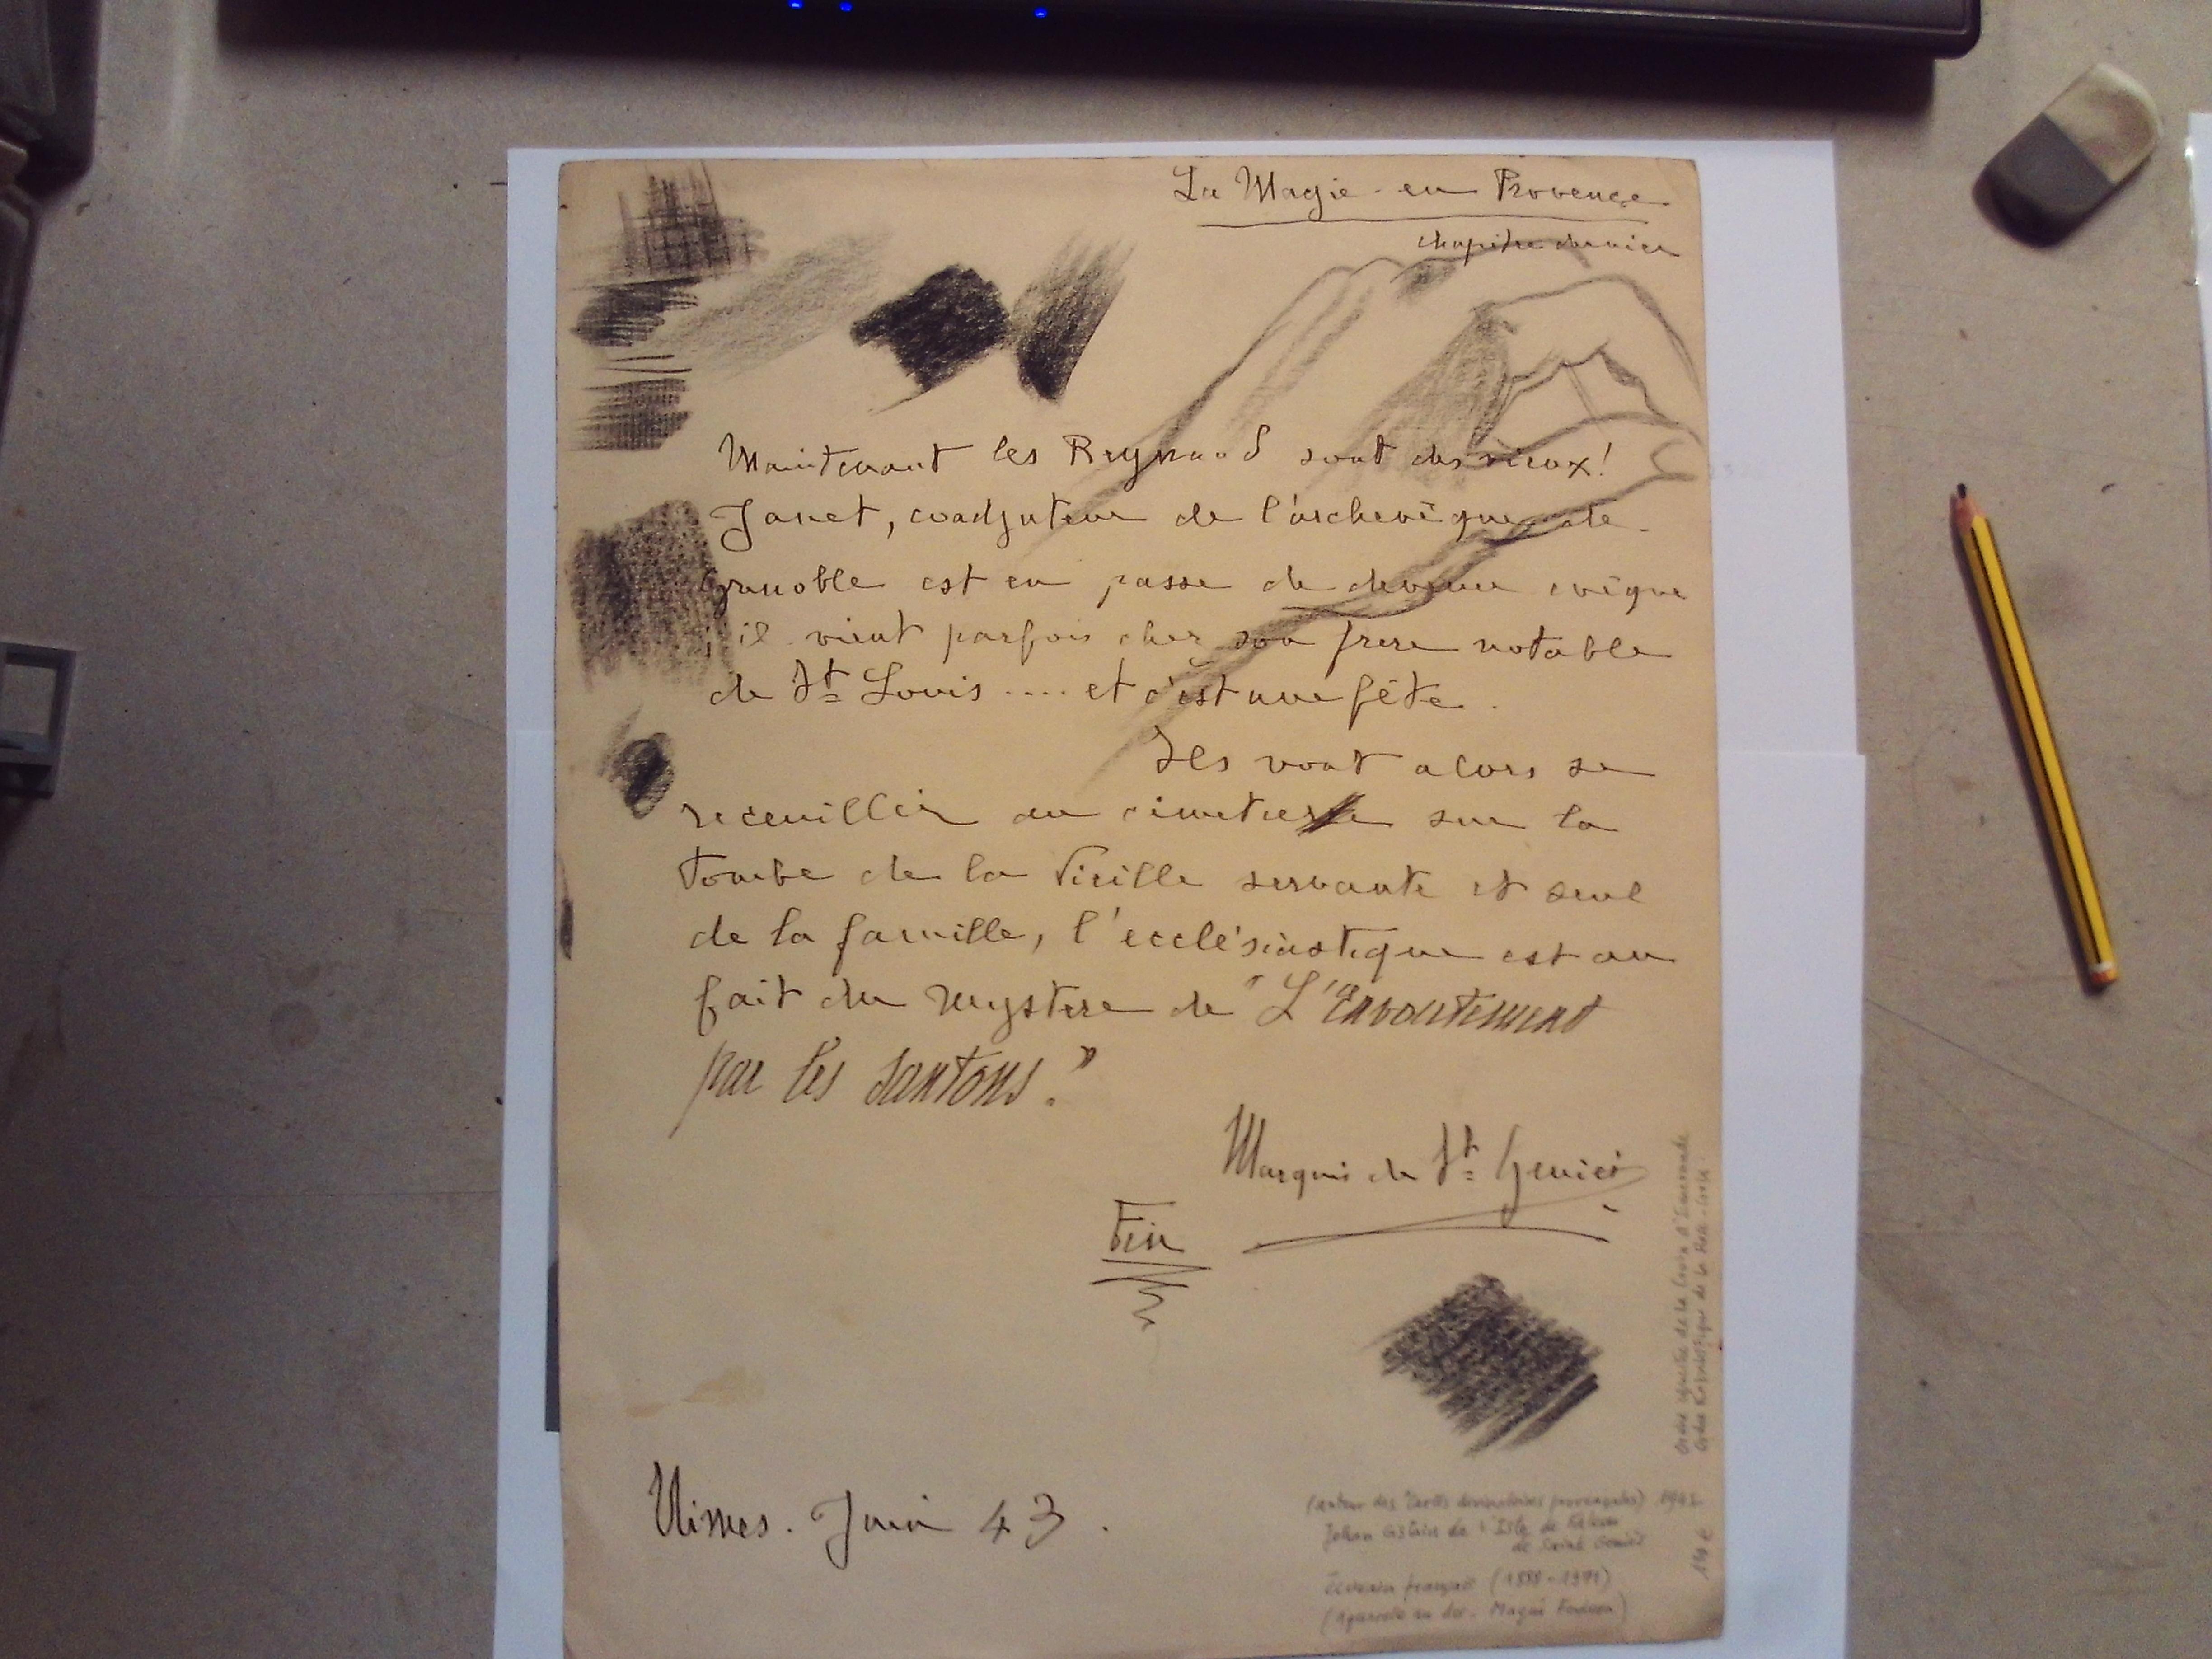 La Magie en Provence
chapitre dernier
Maintenant les Reynaud sont des vieux!
Janet, coadjuteur de l'archevêque de
Grenoble est en passe de devenir evêque
; il vient parfois chez son frere notable
de St Louis .... et c'est une fête.
Ils vont alors se
receuillir au cimetiere sur la
tombe de la Vieille servante et seul
de la famille, l'ecclésiastique est au
fait du mystere de "L'envoutement
par les santons."
Marquis de St Geniès
Fin
Nimes. Juin 43.
(auteur des Tarots divinatoires provençales) 1942
de l'Isle de
de Saint Geniès
Écrivain français (1888-1971)
(Aquarelle au dos.
Ordre de la Croix d'
Ordre Kabbalistique de la Rose-Croix